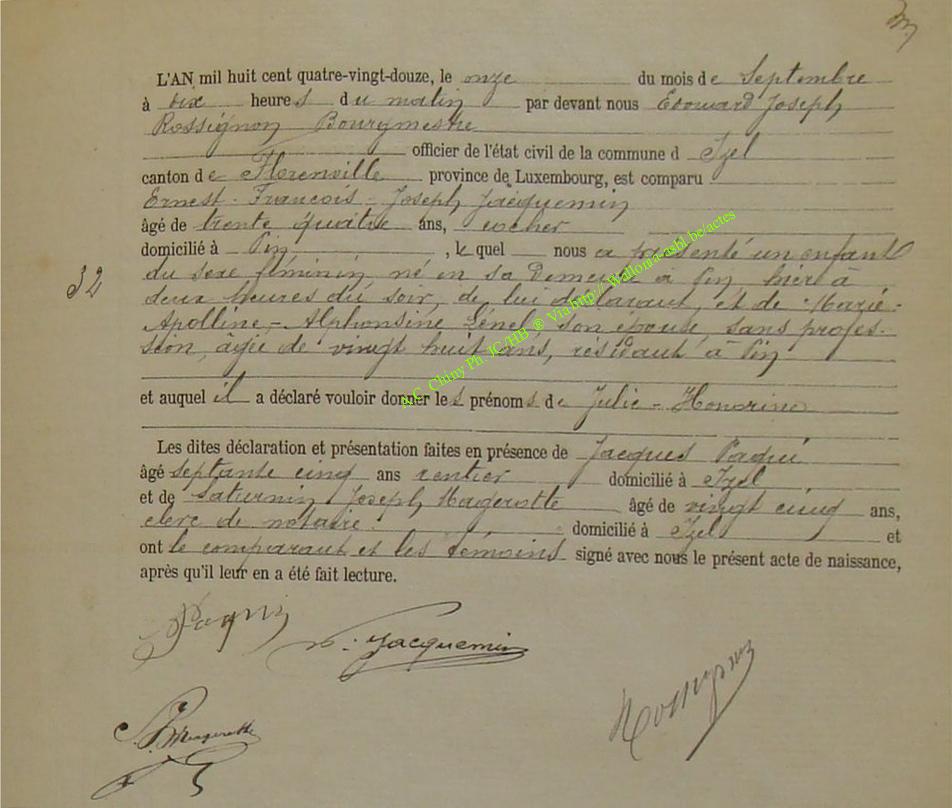 L'AN mil huit cent quatre-vingt-douze, le onze du mois de Septembre
à dix heures du matin par devant nous Edouard Joseph
Rossignon Bourgmestre
officier de l'état civil de la commune d Izel
canton de Florenville province de Luxembourg, est comparu
Ernest-François-Joseph Jacquemin
âgé de trente quatre ans, cocher
domicilié à Pin, lequel nous a présenté un enfant
32
du sexe féminin né en sa Demeure à Pin, hier à
deux heures du soir, de lui déclarant, et de Marie-
Apolline-Alphonsine Lénel son épouse, sans profes-
sion, âgée de vingt huit ans, résidant à Pin
et auquel il a déclaré vouloir donner les prénoms de Julie-Honorine
Les dites déclaration et présentation faites en présence de Jacques Paqui
âgé septante cinq ans rentier domicilié à Izel
et de Saturnin Joseph Magerotte âgé de vingt cinq ans,
clerc de notaire domicilié à Izel et
ont le comparant et les témoins signé avec nous le présent acte de naissance,
après qu'il leur en a été fait lecture.
Paqui
Jacquemin
Magerotte
Rossignon
A.C. Chiny Ph. JC/HB ® Via http://Wallonia-asbl.be/actes